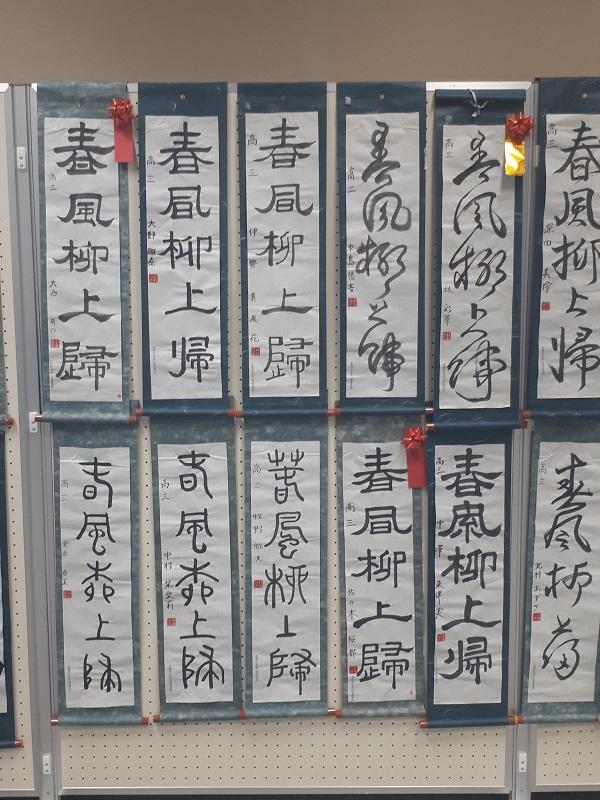 春風柳上歸
高三
大西
春風柳上帰
高三
大野
春風柳上歸
高三
伊勢 真友花
春風柳上帰
高三
春風柳上帰
高三
林
春風柳上帰
高三
春風柳上歸
高三
春風柳上歸
高三
中村
春風柳上歸
高三
牧野 航大
春風柳上歸
高三
佐々木 桜都
春風柳上帰
高三
中澤
春風柳
高三
北村 あずさ